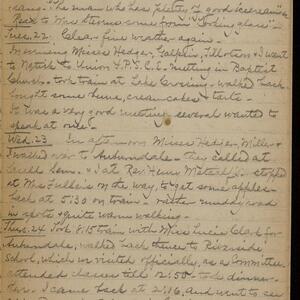 "The man who has plenty of good ice cream
Tues. 22. Clear fine weather again.
In evening Misses Hedger, Galpin, Tillotson & I went
to Natick to Union Y.P.S.C.E. meeting in Baptist
Church. Took train at Lake Crossing - walked back.
Bought some buns, creamcakes & tarts.
It was a very good meeting several wanted to
speak at once!
Wed. 23 In afternoon Misses Hedger, Miller &
I walked over to Auburndale - they called at
& I at Rev. Henry Metcalf's. stopped
at Mrs. Fuller's on the way, to get some apples.
Back at 5:30 on train. - rather muddy road
in spots & quite warm walking.
Thurs. 24 Took 8.15 train with Miss Lucie Clark for
Auburndale, walked back thence to Riverside
School, which we visited officially, as a Committee
attended classes till 12:50 to dinner
I came back at 2.16, and went to see